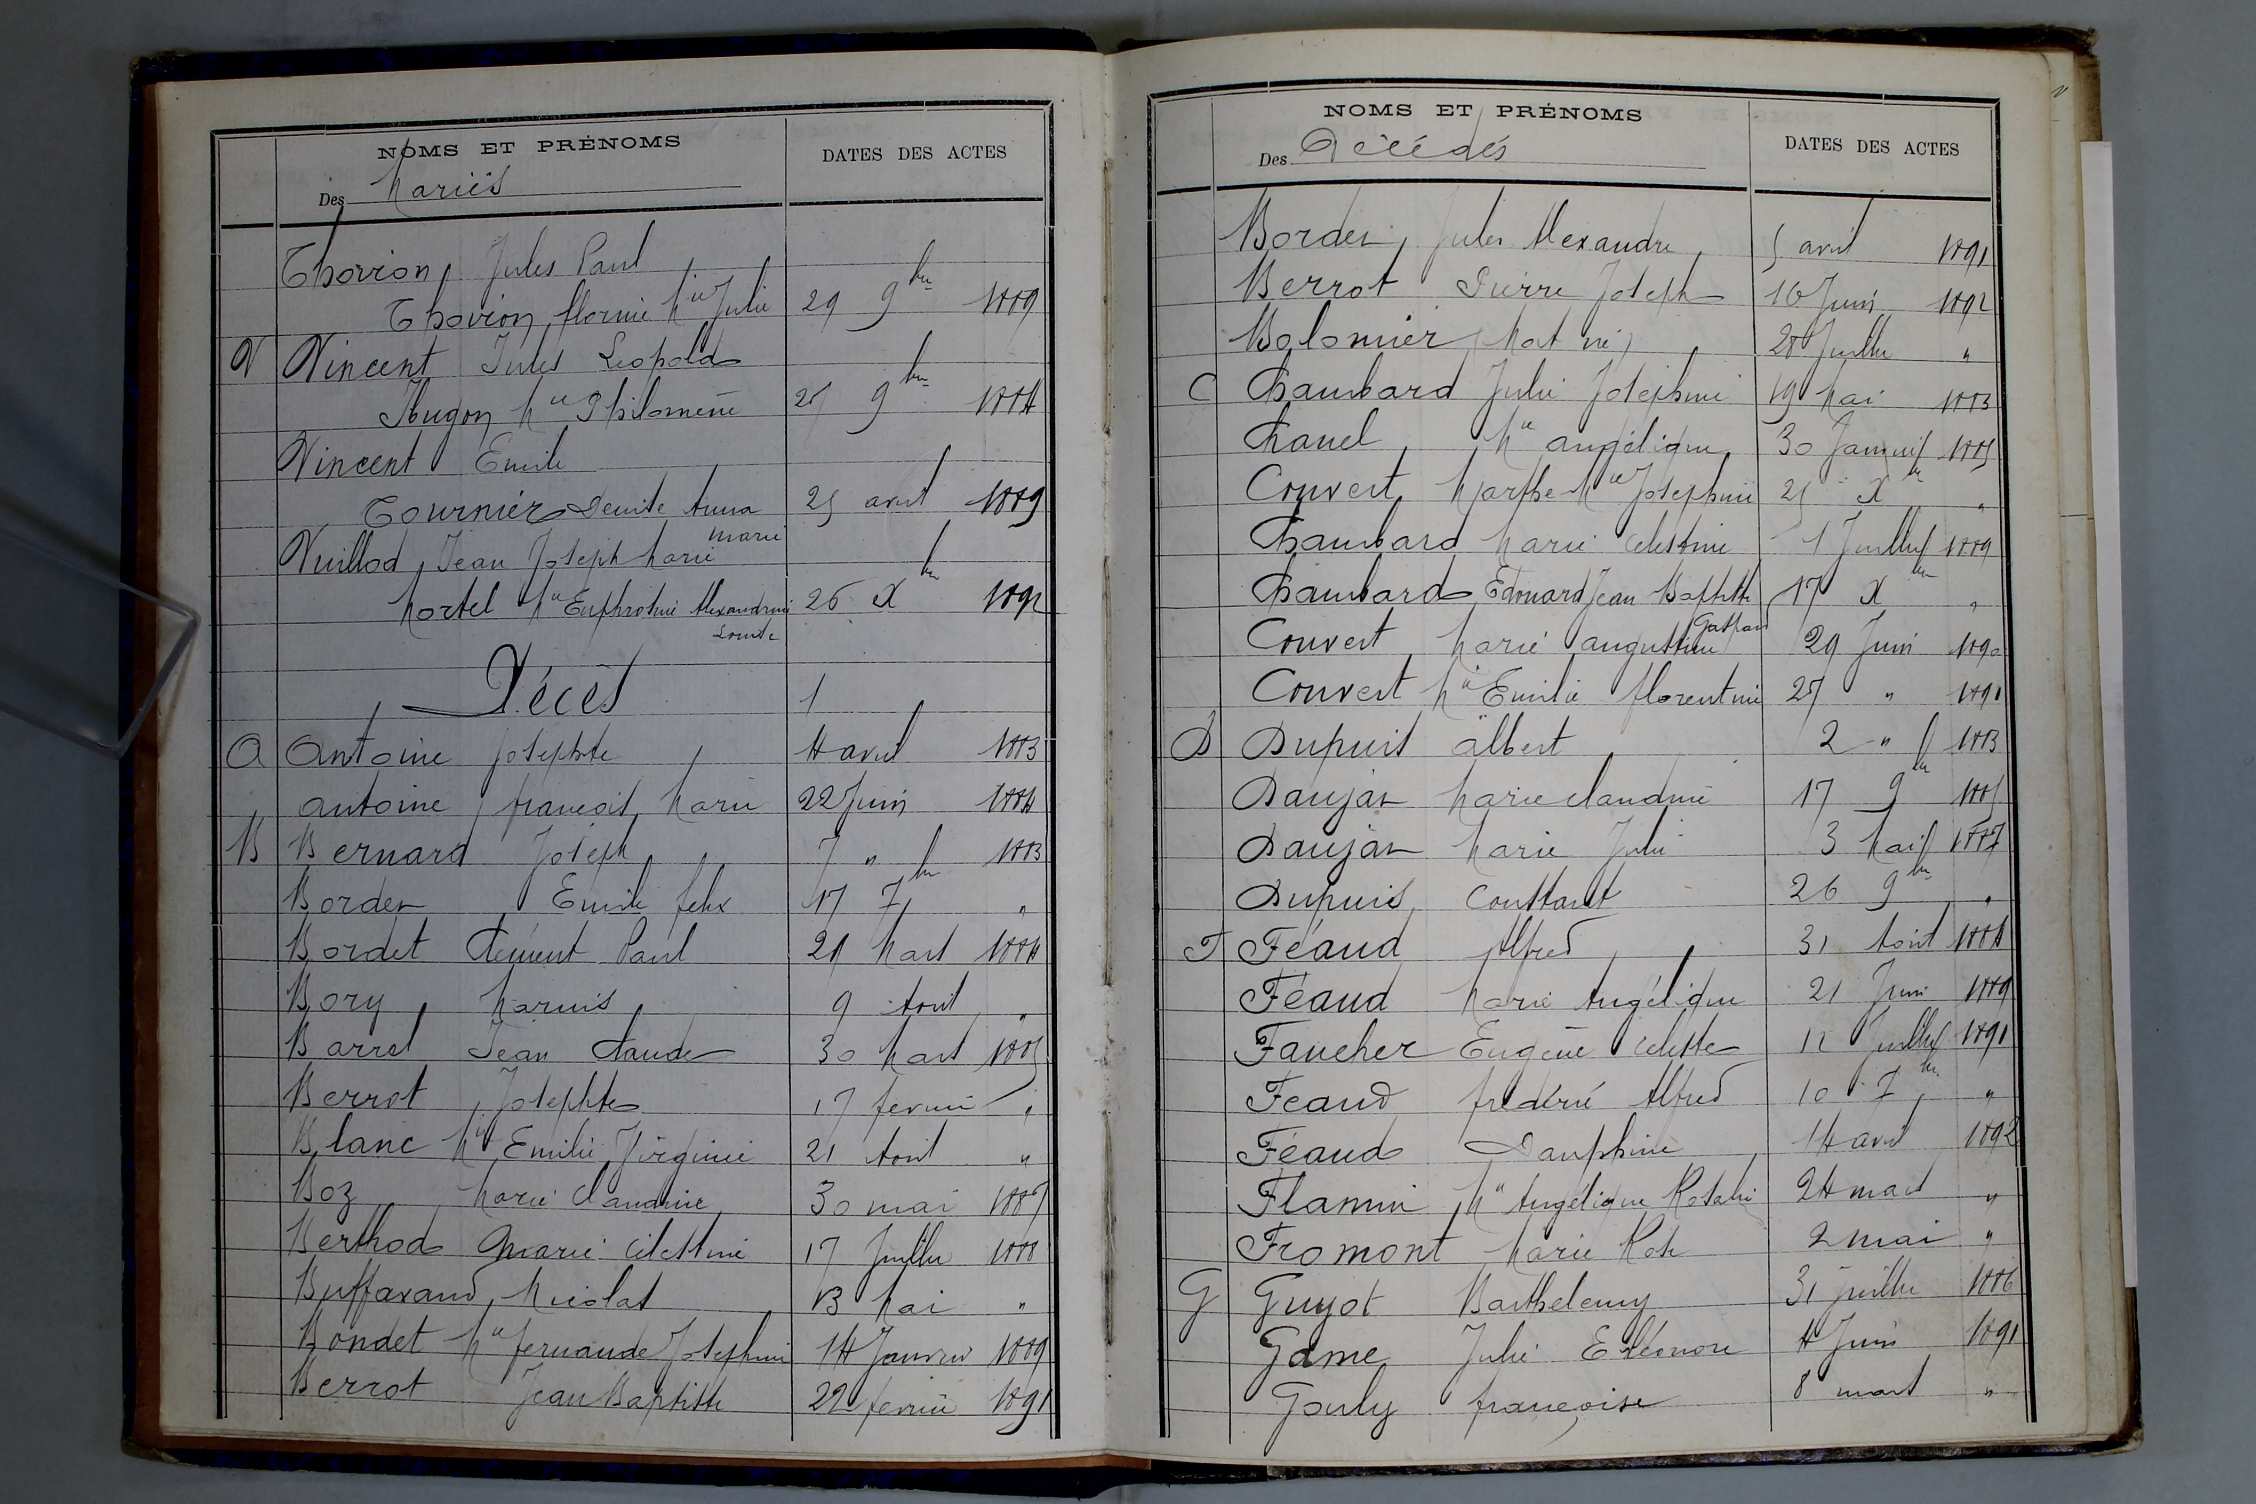 NOMS ET PRÉNOMS
Des Mariés
DATES DES ACTES
Thovion Jules Paul
Thovion florine Mie Julie 29 9bre 1889
V Vincent Jules Léopold
Hugon Mie Philomène 27 9bre 1884
Vincent Emile
Tournier Denise Anna 25 avril 1889
Marie
Vuillod Jean Joseph Marie
Mortel Mie Euphrosine Alexandrine 26 Xbre 1892
Louise
Décès
A Antoine Josephte 4 avril 1883
Antoine françois Marie 22 Juin 1884
B Bernard Joseph 7 " 1883
Border Emile felix 17 7bre "
Bordet Clément Paul 21 Mars 1884
Bory Marius 9 Aout "
Barret Jean Claude 30 Mars 1885
Berrot Josephte 17 fevrier "
Blanc Mie Emilie Virginie 21 Aout "
Boz Marie Claudine 30 mai 1887
Berthod Marie Celestine 17 Juillet 1888
Buffavand Nicolas 13 Mai "
Bondet Mie fernande Josephine 14 Janvier 1889
Berrot Jean Baptiste 22 fevrier 1891
NOMS ET PRÉNOMS
Des Décédés
DATES DES ACTES
Border Jules Alexandre 5 avril 1891
Berrot Pierre Joseph 16 Juin 1892
Bolomier Mort né 28 Juillet "
C Chambard Julie Josephine 19 Mai 1883
Chanel Mie angélique 30 Janvier 1885
Convert Marthe Mie Josephine 25 Xbre "
Chambard Marie Celestine 1 Juillet 1889
Chambard Edouard Jean Baptiste 17 Xbre "
Gaspard
Convert Marie augustine 29 Juin 1890
Convert Mie Emilie florentine 27 " 1891
D Dupuis albert 2 " 1883
Daujat Marie claudine 17 9bre 1885
Daujat Marie Julie 3 Mai 1887
Dupuis Constant 26 9bre "
F Féaud Alfred 31 Aout 1884
Féaud Marie Angélique 21 Juin 1889
Faucher Eugène Celeste 12 Juillet 1891
Feaud frédéric Alfred 10 7bre "
Féaud Dauphine 14 avril 1892
Flamin Mie Angélique Rosalie 24 mars "
Fromont Marie Rose 2 mai "
G Guyot Barthelemy 31 juillet 1886
Game Julie Eléonore 4 Juin 1891
Gouly françoise 8 mars "